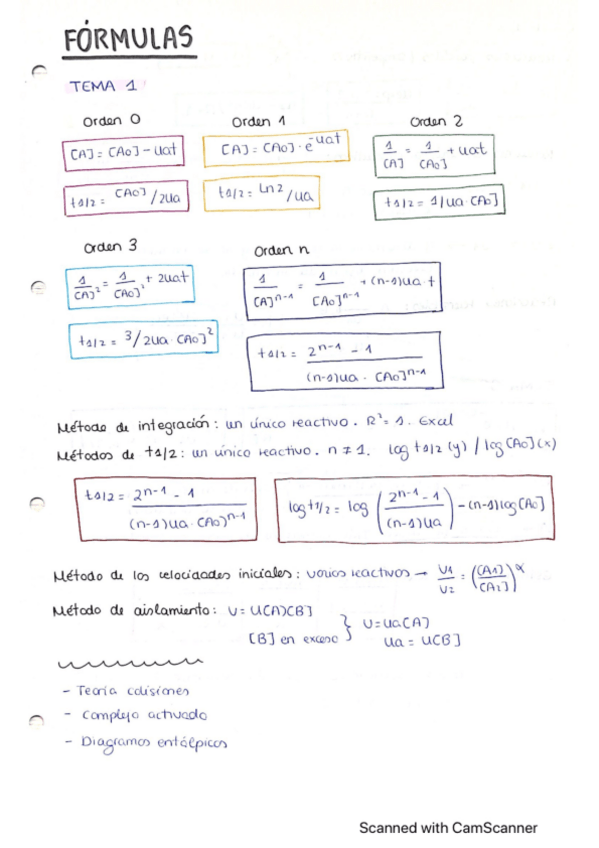 FÓRMULAS
TEMA 1
Orden 0 Orden 1 Orden 2
[A] = [A0] - kat [A] = [A0] · e^-kat 1/[A] = 1/[A0] + kat
t1/2 = [A0]/2ka t1/2 = Ln2/ka t1/2 = 1/ka·[A0]
Orden 3 Orden n
1/[A]² = 1/[A0]² + 2kat 1/[A]^n-1 = 1/[A0]^n-1 + (n-1)ka t
t1/2 = 3/2ka·[A0]² t1/2 = 2^n-1 - 1/(n-1)ka·[A0]^n-1
Método de integración: un único reactivo. R²=1. Excel
Métodos de t1/2: un único reactivo. n ≠ 1. log t1/2 (y) / log[A0](x)
t1/2 = 2^n-1 - 1/(n-1)ka·[A0]^n-1 log t1/2 = log (2^n-1 - 1/(n-1)ka) - (n-1)log[A0]
Método de las velocidades iniciales: varios reactivos → v1/v2 = ([A1]/[A2])^α
Método de aislamiento: v = k[A][B] } v = ka[A]
[B] en exceso } ka = k[B]
- Teoría colisiones
- Complejo activado
- Diagramas entálpicos
Scanned with CamScanner